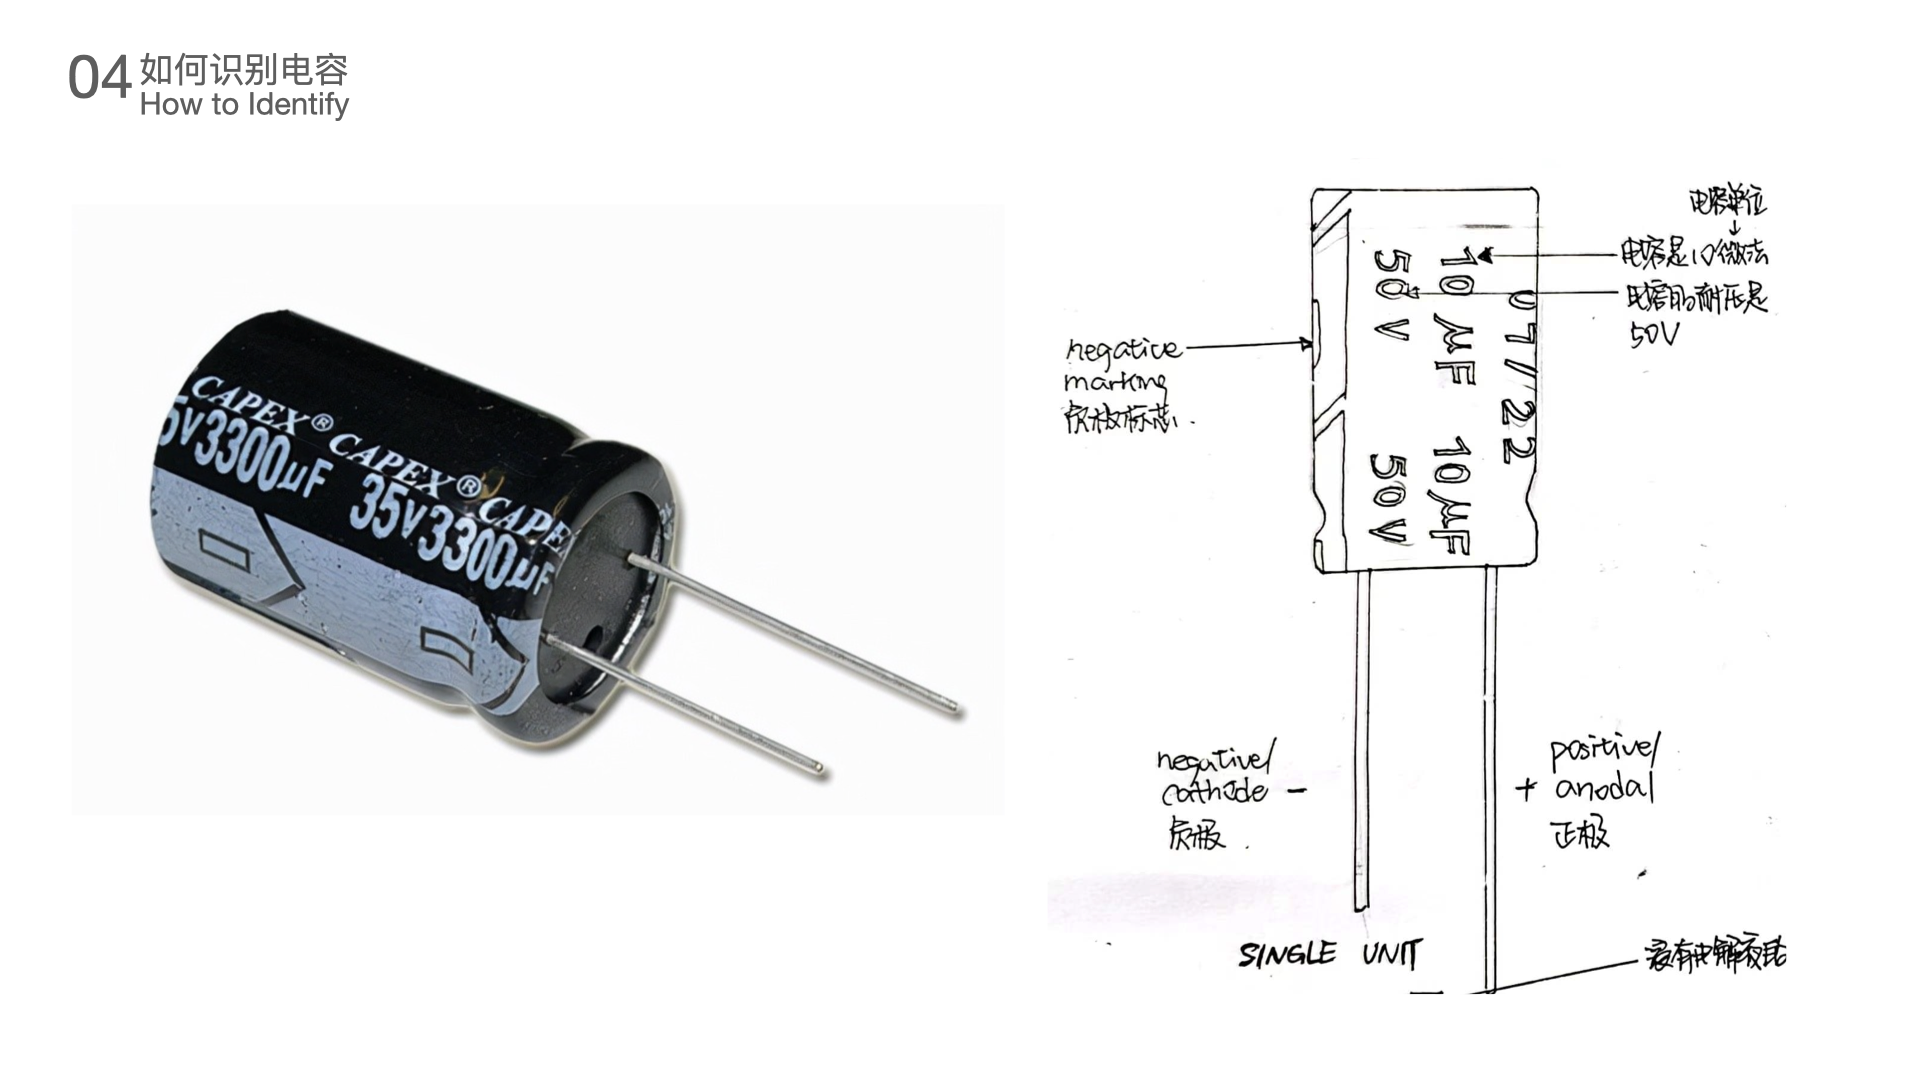 04
如何识别电容
How to Identify
CAPEX® CAPEX® CAPE
5V3300µF 35V3300µF
电容单位
↓
电容是10微法
电容的耐压是
50V
negative
marking
负极标志.
10µF 10µF
50V 50V
07/22
negative/
cathode -
负极.
positive/
+ anodal
正极
SINGLE UNIT